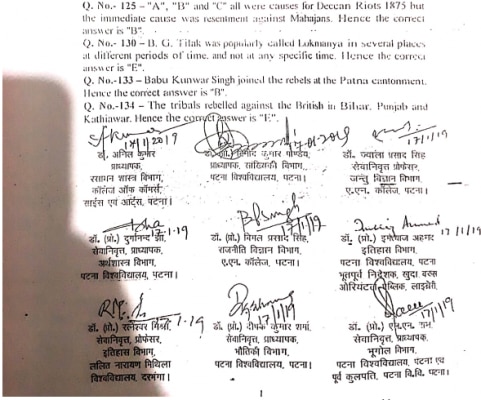 Q. No.- 125 – "A", "B" and "C" all were causes for Deccan Riots 1875 but
the immediate cause was resentment against Mahajans. Hence the correct
answer is "B".
Q. No.- 130 – B. G. Tilak was popularly called Lokmanya in several places
at different periods of time, and not at any specific time. Hence the correct
answer is "E".
Q. No.-133 – Babu Kunwar Singh joined the rebels at the Patna cantonment.
Hence the correct answer is "B".
Q. No.-134 – The tribals rebelled against the British in Bihar, Punjab and
Kathiawar. Hence the correct answer is "E".
17/1/2019 17-01-2019 17/1/19
डॉ. अनिल कुमार
प्राध्यापक,
रसायन शास्त्र विभाग,
कॉलेज ऑफ कॉमर्स,
साईंस एवं आर्ट्स, पटना।
डॉ. (प्रो.) कुमार पाण्डेय,
प्राध्यापक, सांख्यिकी विभाग,
पटना विश्वविद्यालय, पटना।
डॉ. ज्वाला प्रसाद सिंह
सेवानिवृत्त प्रोफेसर,
जन्तु विज्ञान विभाग,
ए.एन. कॉलेज, पटना।
17-1-19 17/1/19 17/1/19
डॉ. (प्रो.) दुर्गानन्द झा,
सेवानिवृत्त, प्राध्यापक,
अर्थशास्त्र विभाग,
पटना विश्वविद्यालय, पटना।
डॉ. (प्रो.) विमल प्रसाद सिंह,
राजनीति विज्ञान विभाग,
ए.एन. कॉलेज, पटना।
Imteyaz Ahmad
डॉ. (प्रो.) इम्तेयाज अहमद
इतिहास विभाग,
पटना विश्वविद्यालय, पटना
भूतपूर्व निदेशक, खुदा बख्श
ओरियंटल पब्लिक, लाइब्रेरी,
17/1/19 17/1/19
डॉ. (प्रो.) रत्नेश्वर मिश्रा,
सेवानिवृत्त, प्रोफेसर,
इतिहास विभाग,
ललित नारायण मिथिला
विश्वविद्यालय, दरभंगा।
डॉ. (प्रो.) दीपक कुमार शर्मा,
सेवानिवृत्त, प्राध्यापक,
भौतिकी विभाग,
पटना विश्वविद्यालय, पटना।
डॉ. (प्रो.) एन.एन. शर्मा
सेवानिवृत्त, प्राध्यापक,
भूगोल विभाग,
पटना विश्वविद्यालय, पटना एवं
पूर्व कुलपति, पटना वि.वि. पटना।
1